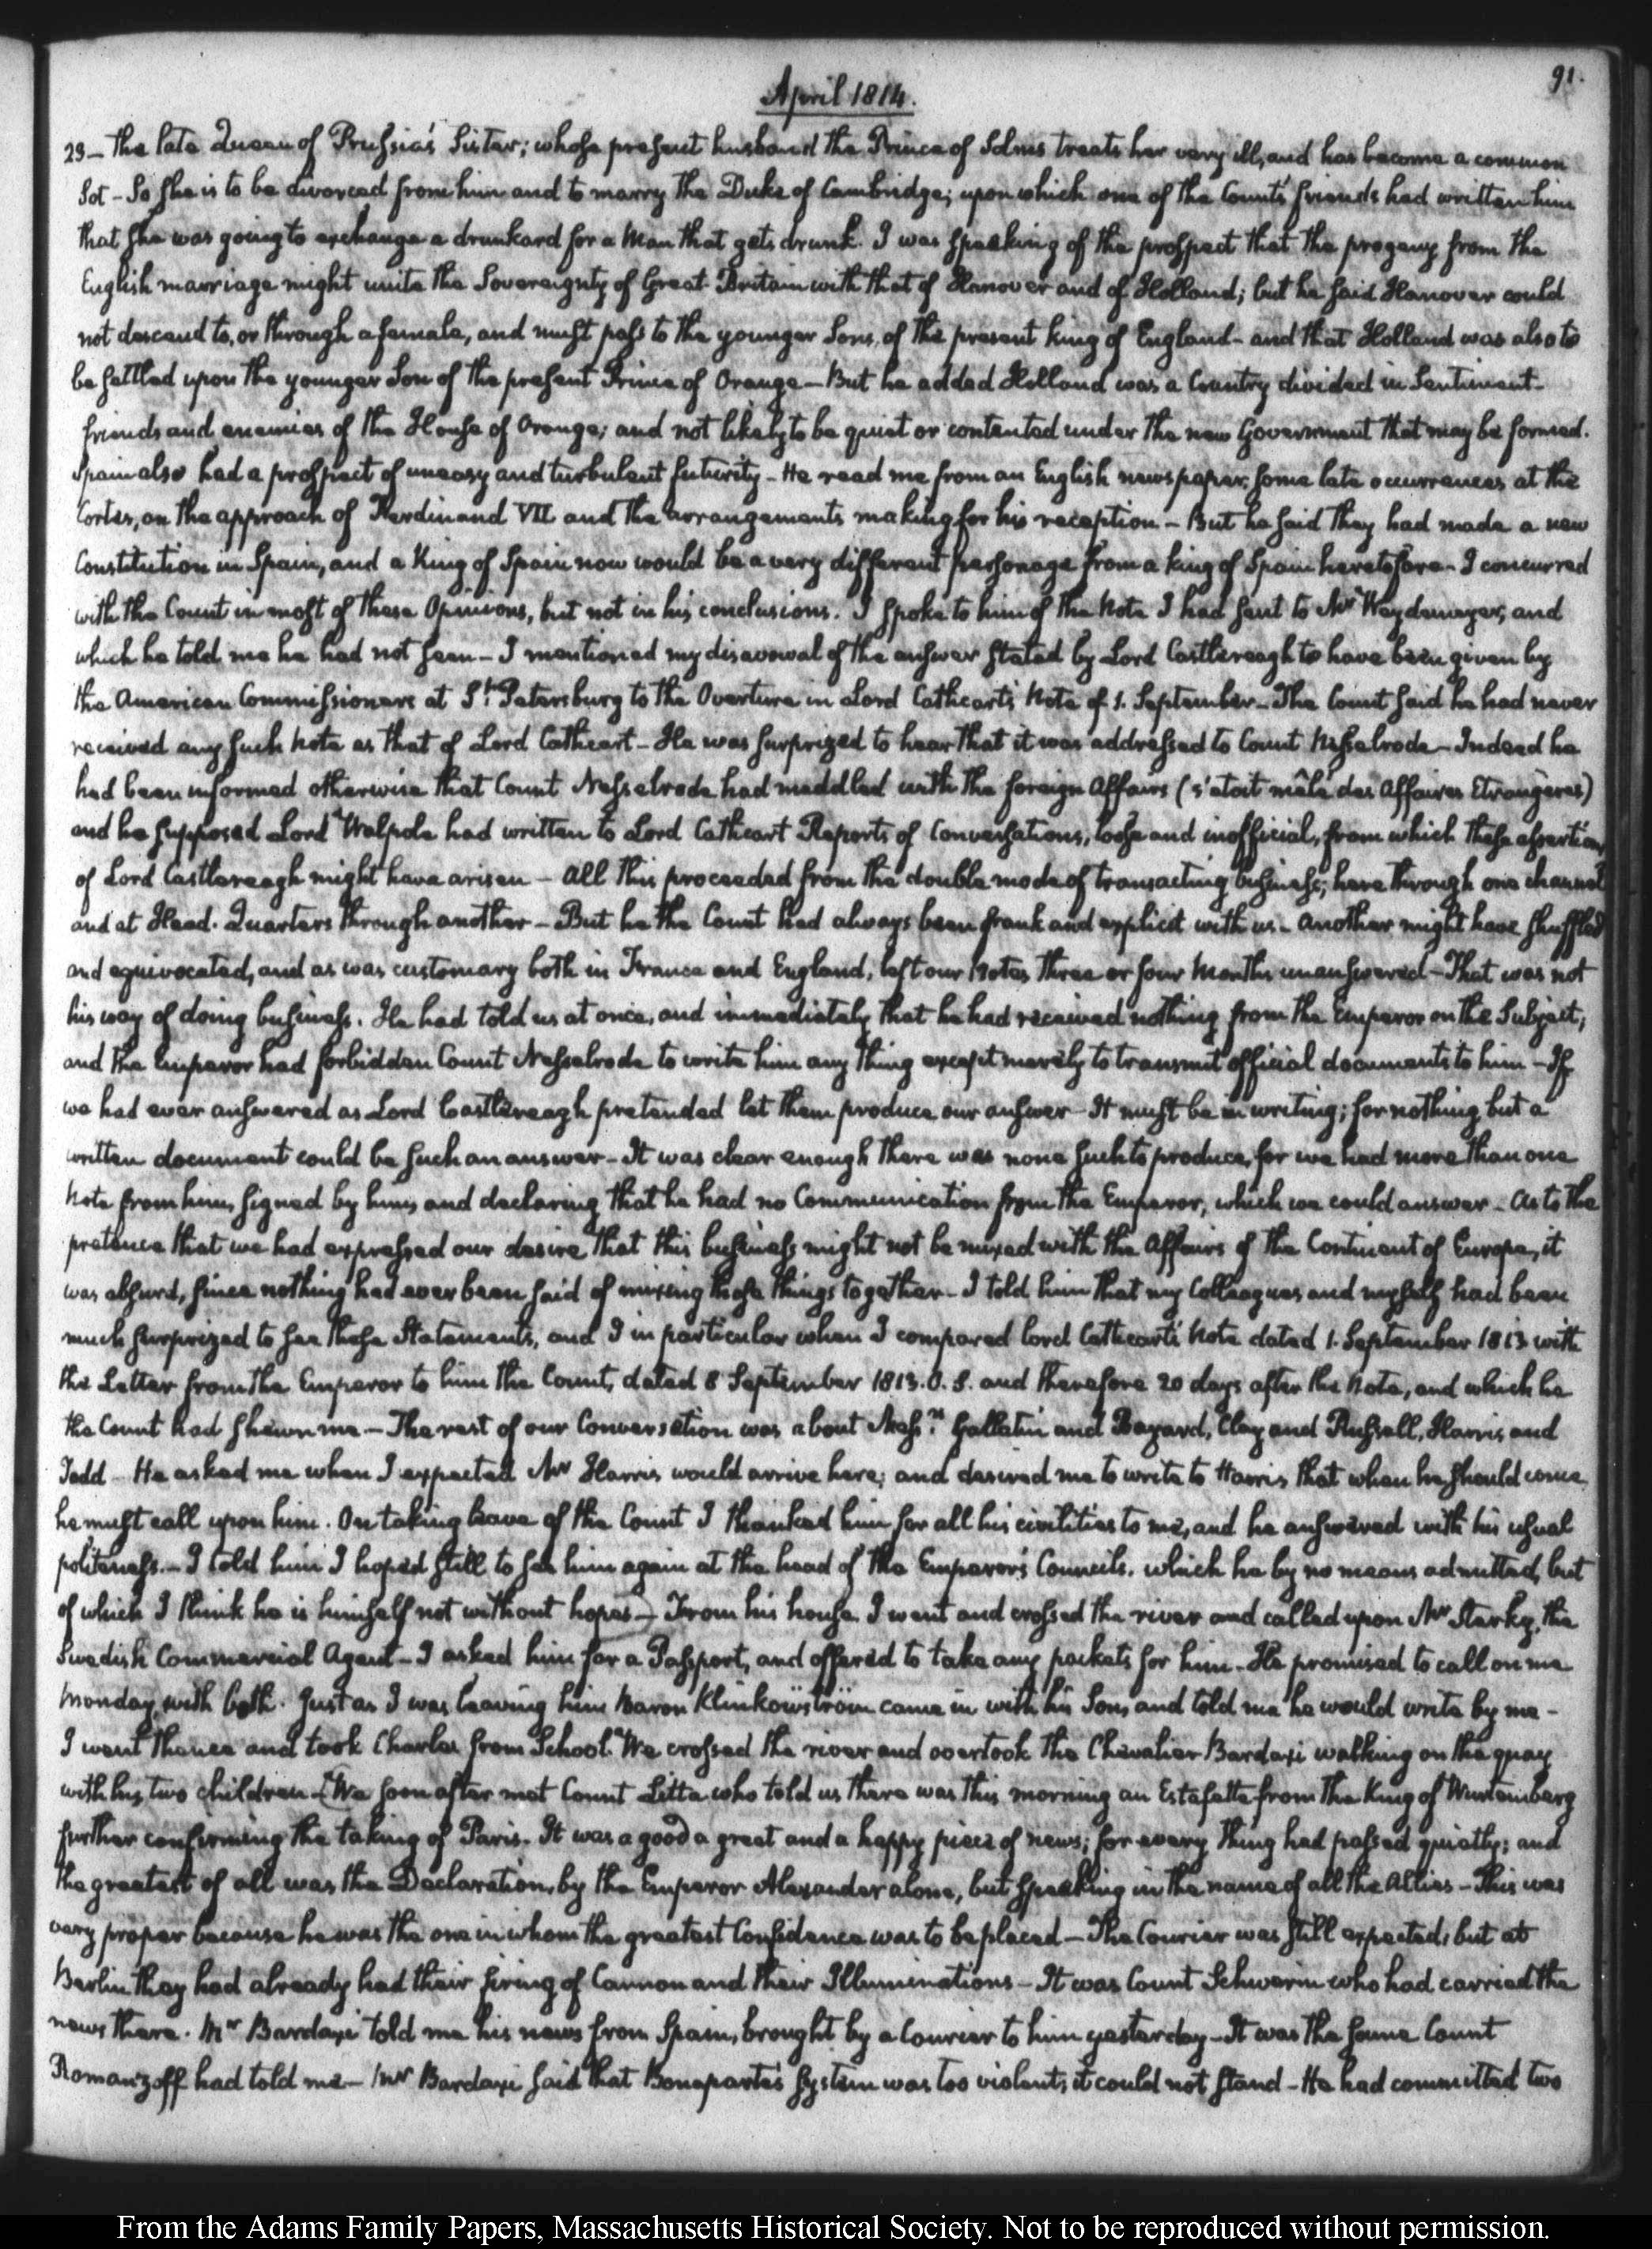 91.
April 1814.
23 — The late Queen of Prussia's Sister; whose present husband the Prince of Solms treats her very ill, and has become a common
Sot - So she is to be divorced from him and to marry the Duke of Cambridge; upon which one of the Count's friends had written him
that she was going to exchange a drunkard for a Man that gets drunk. I was speaking of the prospect that the progeny from the
English marriage might unite the Sovereignty of Great-Britain with that of Hanover and of Holland; but he said Hanover could
not descend to, or through a female, and must pass to the younger Sons of the present king of England - and that Holland was also to
be settled upon the younger Son of the present Prince of Orange — But he added Holland was a Country divided in Sentiment -
friends and enemies of the House of Orange; and not likely to be quiet or contented under the new Government that may be formed.
Spain also had a prospect of uneasy and turbulent futurity - He read me from an English newspaper, some late occurrences at the
Cortes, on the approach of Ferdinand VII and the arrangements making for his reception - But he said they had made a new
Constitution in Spain, and a King of Spain now would be a very different personage from a king of Spain heretofore - I concurred
with the Count in most of these Opinions, but not in his conclusions. I spoke to him of the Note I had sent to Mr Weydemeyer, and
which he told me he had not seen - I mentioned my disavowal of the answer stated by Lord Castlereagh to have been given by
the American Commissioners at St Petersburg to the Overture in Lord Cathcart's Note of 1. September - The Count said he had never
received any such Note as that of Lord Cathcart - He was surprized to hear that it was addressed to Count Nesselrode - Indeed he
had been informed otherwise that Count Nesselrode had meddled with the foreign Affairs (s'etoit mêlé des Affaires Etrangères)
and he supposed Lord Walpole had written to Lord Cathcart Reports of Conversations, loose and inofficial, from which these assertions
of Lord Castlereagh might have arisen - All this proceeded from the double mode of transacting business; here through one channel
and at Head-Quarters through another - But he the Count had always been frank and explicit with us - Another might have shuffled
and equivocated, and as was customary both in France and England, left our Notes three or four Months unanswered - That was not
his way of doing business. He had told us at once, and immediately that he had received nothing from the Emperor on the Subject;
and the Emperor had forbidden Count Nesselrode to write him any thing except merely to transmit official documents to him - If
we had ever answered as Lord Castlereagh pretended let them produce our answer - It must be in writing; for nothing but a
written document could be such an answer - It was clear enough there was none such to produce, for we had more than one
Note from him, signed by him, and declaring that he had no Communication from the Emperor, which we could answer - As to the
pretence that we had expressed our desire that this business might not be mixed with the Affairs of the Continent of Europe, it
was absurd, since nothing had ever been said of mixing those things together - I told him that my Colleagues and myself had been
much surprized to see these Statements, and I in particular when I compared lord Cathcart's Note dated 1. September 1813 with
the Letter from the Emperor to him the Count, dated 8 September 1813. O.S. and therefore 20 days after the Note, and which he
the Count had shewn me — The rest of our Conversation was about Messrs Gallatin and Bayard, Clay and Russell, Harris and
Todd - He asked me when I expected Mr Harris would arrive here; and desired me to write to Harris that when he should come
he must call upon him. On taking leave of the Count I thanked him for all his civilities to me, and he answered with his usual
politeness. - I told him I hoped still to see him again at the head of the Emperor's Councils, which he by no means admitted, but
of which I think he is himself not without hopes - From his house I went and crossed the river and called upon Mr Sterky, the
Swedish Commercial Agent - I asked him for a Passport, and offered to take any packets for him - He promised to call on me
Monday, with both. Just as I was leaving him Baron Klinkowström came in with his Son, and told me he would write by me -
I went thence and took Charles from School. We crossed the river and overtook the Chevalier Bardaxi walking on the quay
with his two children - We soon after met Count Litta who told us there was this morning an Estafette from the King of Wurtemberg
further confirming the taking of Paris. It was a good a great and a happy piece of news; for every thing had passed quietly; and
the greatest of all was the Declaration, by the Emperor Alexander alone, but speaking in the name of all the Allies - This was
very proper because he was the one in whom the greatest Confidence was to be placed — The Courier was still expected, but at
Berlin they had already had their firing of Cannon and their Illuminations - It was Count Schwerin who had carried the
news there. Mr Bardaxi told me his news from Spain, brought by a Courier to him yesterday - It was the same Count
Romanzoff had told me - Mr Bardaxi said that Bonaparte's system was too violent; it could not stand - He had committed two
From the Adams Family Papers, Massachusetts Historical Society. Not to be reproduced without permission.